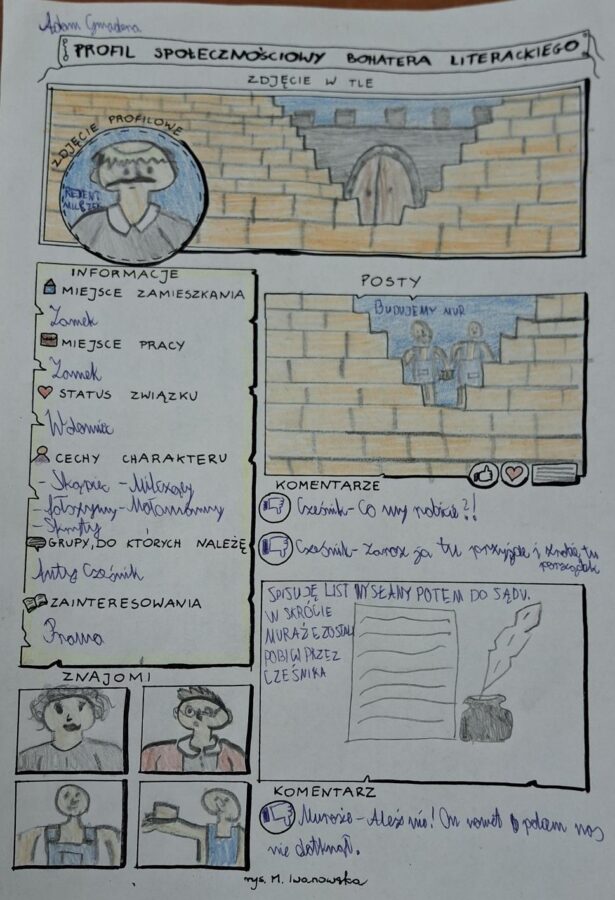 Adam Gmadera
PROFIL SPOŁECZNOŚCIOWY BOHATERA LITERACKIEGO
ZDJĘCIE W TLE
ZDJĘCIE PROFILOWE
REJENT
MILCZEK
INFORMACJE
MIEJSCE ZAMIESZKANIA
Zamek
MIEJSCE PRACY
Zamek
STATUS ZWIĄZKU
Wdowiec
CECHY CHARAKTERU
- Skąpiec - Milczący
- fałszywy - Małomówny
- Skryty
GRUPY, DO KTÓRYCH NALEŻĘ
Anty Cześnik
ZAINTERESOWANIA
Prawo
ZNAJOMI
POSTY
BUDUJEMY MUR
KOMENTARZE
Cześnik - Co wy robicie?!
Cześnik - Zaraz ja tu przyjdę i zrobię tu
porządek
SPISUJĘ LIST WYSŁANY POTEM DO SĄDU.
W SKRÓCIE
MURAŻE ZOSTALI
POBICI PRZEZ
CZEŚNIKA
KOMENTARZ
Murarze - Ależ nie! On nawet palcem nas
nie dotknął.
rys. M. Iwanowska